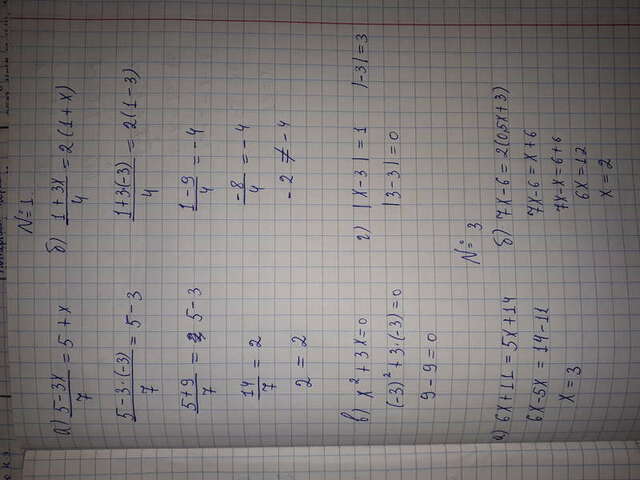 № 1
а) (5-3x)/7 = 5+x
б) (1+3x)/4 = 2(1+x)
(5-3·(-3))/7 = 5-3
(1+3·(-3))/4 = 2(1-3)
(5+9)/7 = 5-3
(1-9)/4 = -4
14/7 = 2
-8/4 = -4
2 = 2
-2 ≠ -4
в) x² + 3x = 0
г) |x-3| = 1 |-3| = 3
(-3)² + 3·(-3) = 0
|3-3| = 0
9-9 = 0
№ 3
а) 6x+11 = 5x+14
б) 7x-6 = 2(0,5x+3)
6x-5x = 14-11
7x-6 = x+6
x = 3
7x-x = 6+6
6x = 12
x = 2